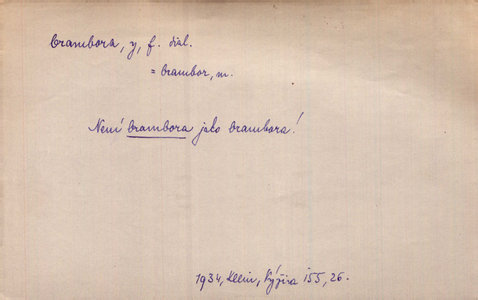 brambora, y, f. dial.
= brambor, m.
Není brambora jako brambora!
1934, Klein, Rýžira 155, 26.